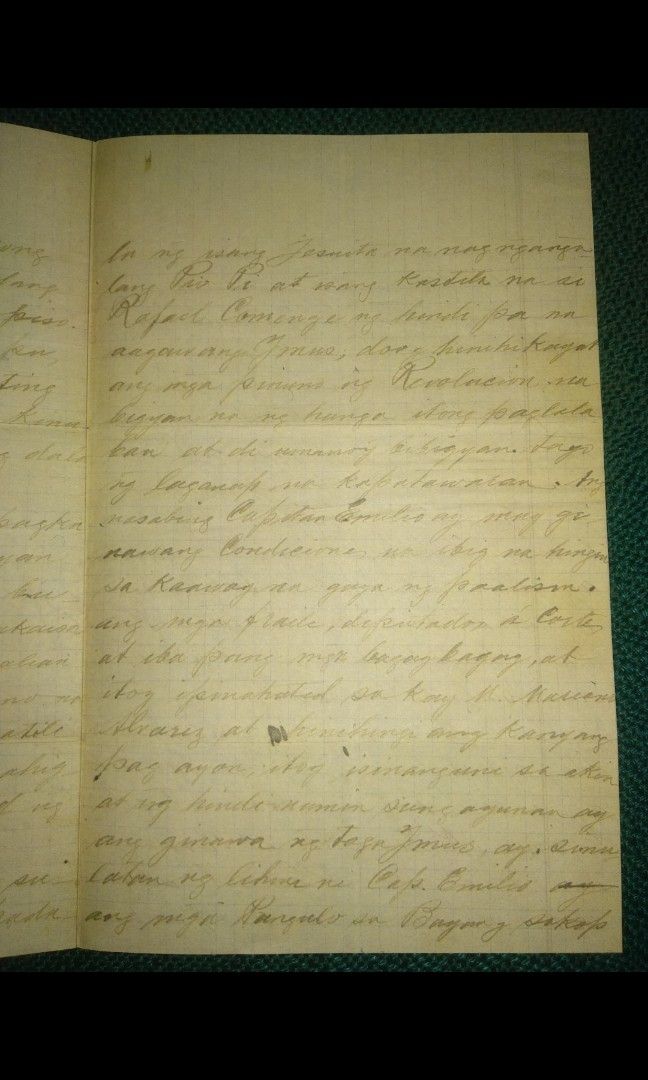 ung
lang
piso.
ting
g dala
pagka
yan
akaisa
atile
d ng
su
la ng isang Jesuita na nag nganga-
lang Pio Pi at isang Kastila na si
Rafael Comenge ng hindi pa na
aagaw ang Ymus, dooy hinihikayat
ang mga puno ng Revolucion na
bigyan na ng hanga itong paglala
ban at di umanoy bibigyan
ng laganap na kapatawaran. Ang
nasabing Capitan Emilio ay mag gi
nawang Condicione, na ibig na hingin
sa Kaaway na gaya ng paalisin.
ang mga fraile, deputados á Cortes
at iba pang mga bagay bagay, at
itoy ipinahatid sa kay M. Mariano
Alvarez at hinihingi ang kanyang
pag ayon, itoy isinanguni sa akin
at ng hindi namin sang ayunan ay
ang ginawa ng taga Ymus, ay. sinu
latan ng lihim ni Cap. Emilio ay
ang mga Pangulo sa Bayang sakop